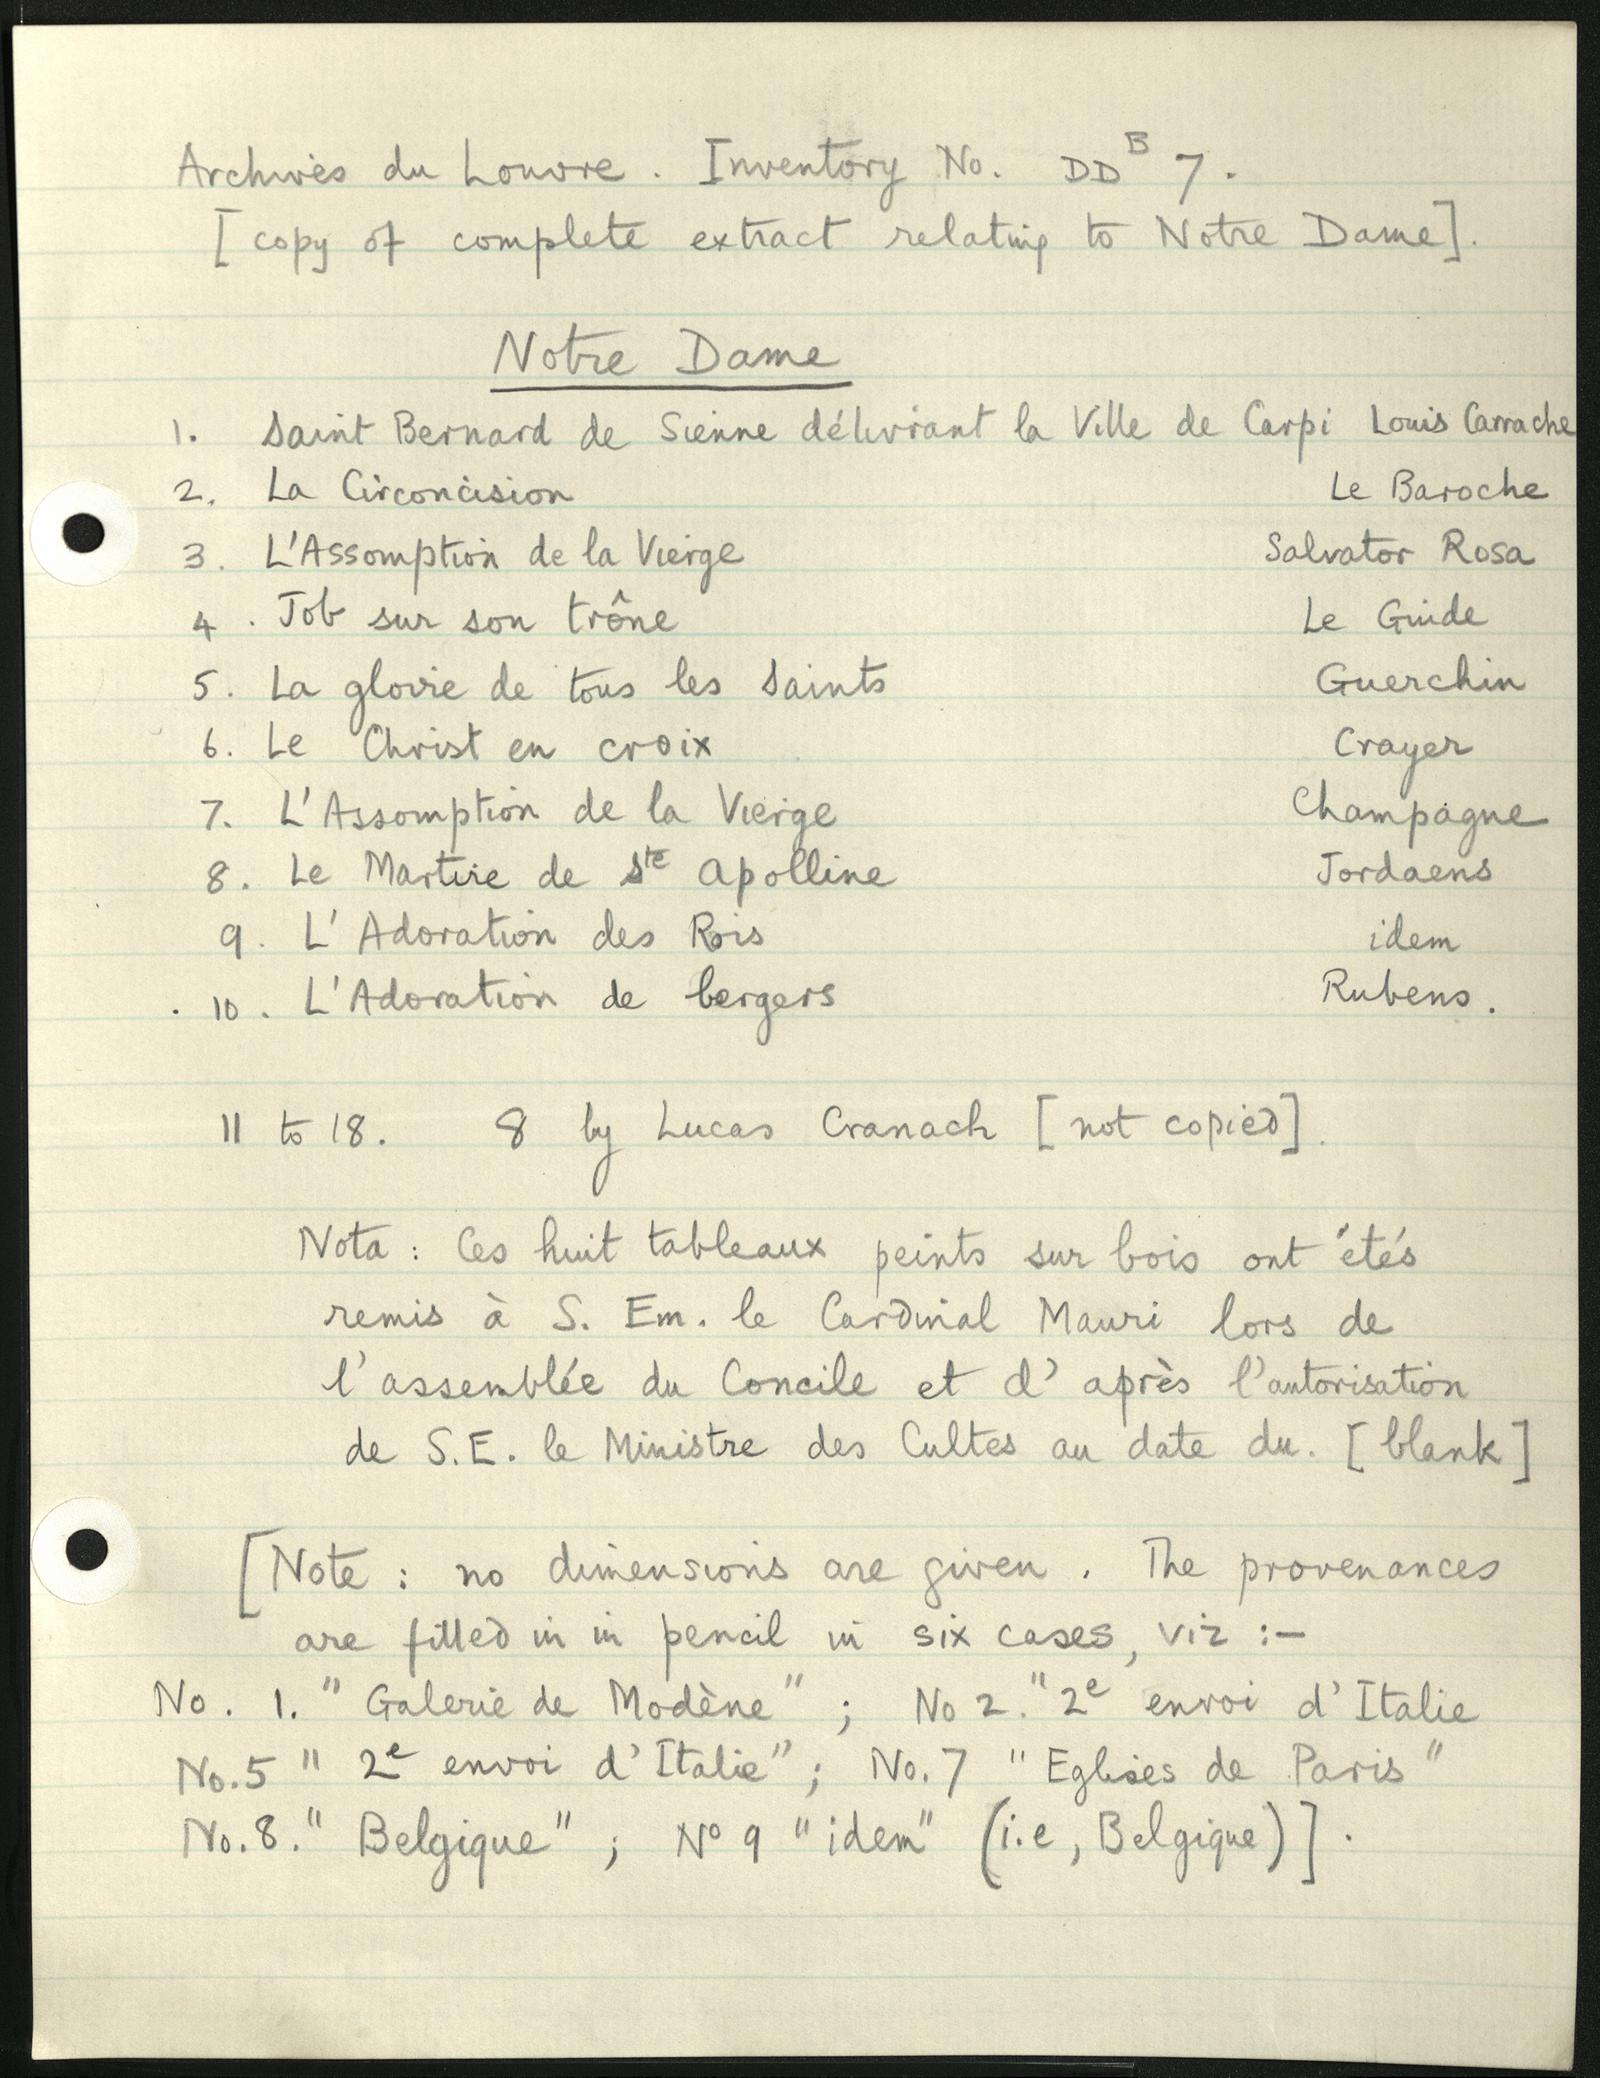 Archives du Louvre. Inventory No. DD^B 7.
[copy of complete extract relating to Notre Dame].
Notre Dame
1. Saint Bernard de Sienne délivrant la Ville de Carpi Louis Carrache
2. La Circoncision Le Baroche
3. L'Assomption de la Vierge Salvator Rosa
4. Job sur son trône Le Guide
5. La gloire de tous les Saints Guerchin
6. Le Christ en croix Crayer
7. L'Assomption de la Vierge Champagne
8. Le Martire de Ste Apolline Jordaens
9. L'Adoration des Rois idem
10. L'Adoration de bergers Rubens.
11 to 18. 8 by Lucas Cranach [not copied].
Nota : Ces huit tableaux peints sur bois ont étés
remis à S. Em. le Cardinal Mauri lors de
l'assemblée du Concile et d'après l'autorisation
de S.E. le Ministre des Cultes au date du. [blank]
[Note : no dimensions are given. The provenances
are filled in in pencil in six cases, viz :—
No. 1. "Galerie de Modène" ; No 2. "2e envoi d'Italie
No. 5 "2e envoi d'Italie" ; No. 7 "Eglises de Paris"
No. 8. "Belgique" ; No 9 "idem" (i.e, Belgique)].